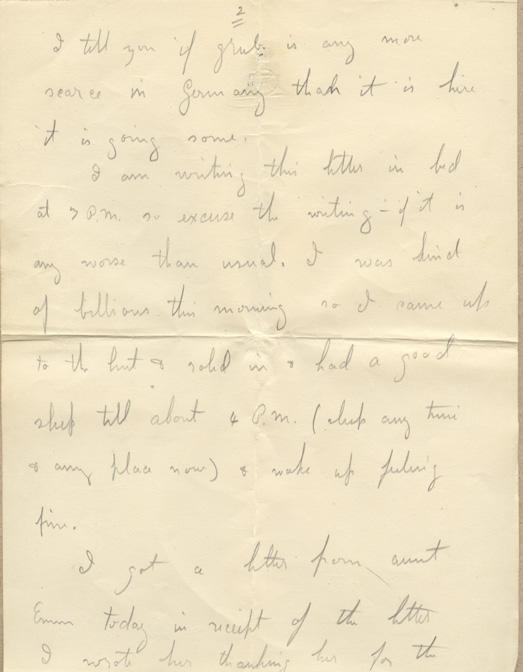 2
I tell you if grub is any more
scarce in Germany than it is here
it is going some.
I am writing this letter in bed
at 7 P.M. so excuse the writing - if it is
any worse than usual. I was kind
of billious this morning so I came up
to the hut & rolled in & had a good
sleep till about 4 P.M. (sleep any time
& any place now) & woke up feeling
fine.
I got a letter from aunt
Emm today in receipt of the letter
I wrote her thanking her for the